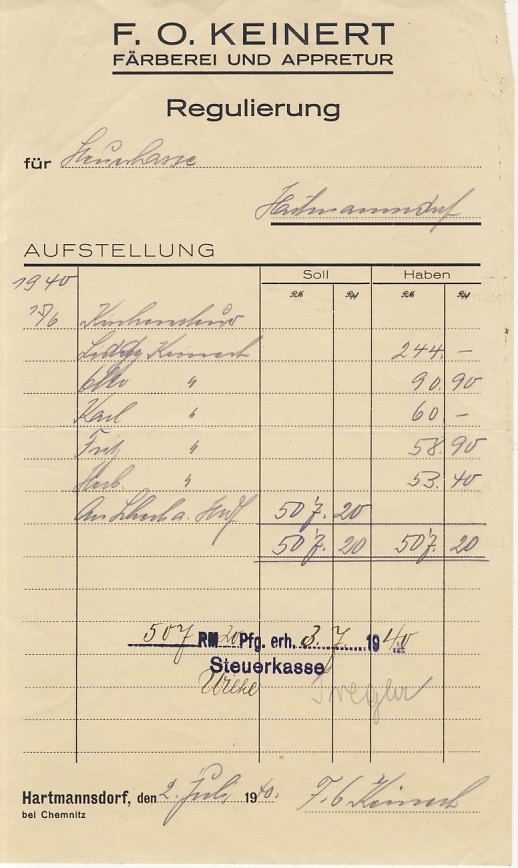 F. O. KEINERT
FÄRBEREI UND APPRETUR
Regulierung
für Steuerkasse
Hartmannsdorf
AUFSTELLUNG
Soll Haben
1940 RM Rpf RM Rpf
15/6 Kirchensteuer
Liddy Keinert 244. –
Otto " 90. 90
Karl " 60 –
Fritz " 58. 90
Herb. " 53. 40
An Scheck a. 507. 20
507. 20 507. 20
507 RM 20 Pfg. erh. 3. 7. 1940
Steuerkasse
Hartmannsdorf, den 2. Juli 1940. F. O. Keinert
bei Chemnitz